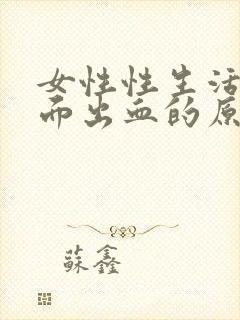 女性性生活
而出血的原
蘇鑫